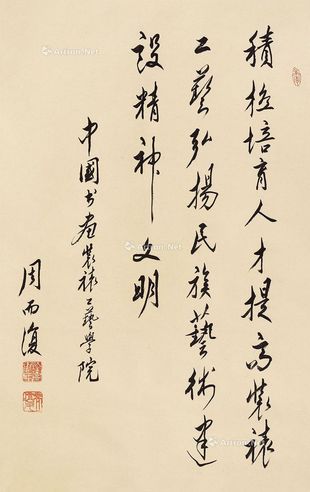 積極培育人才提高裝裱
工藝弘揚民族藝術建
設精神文明
中國书画裝裱工藝學院
周而復